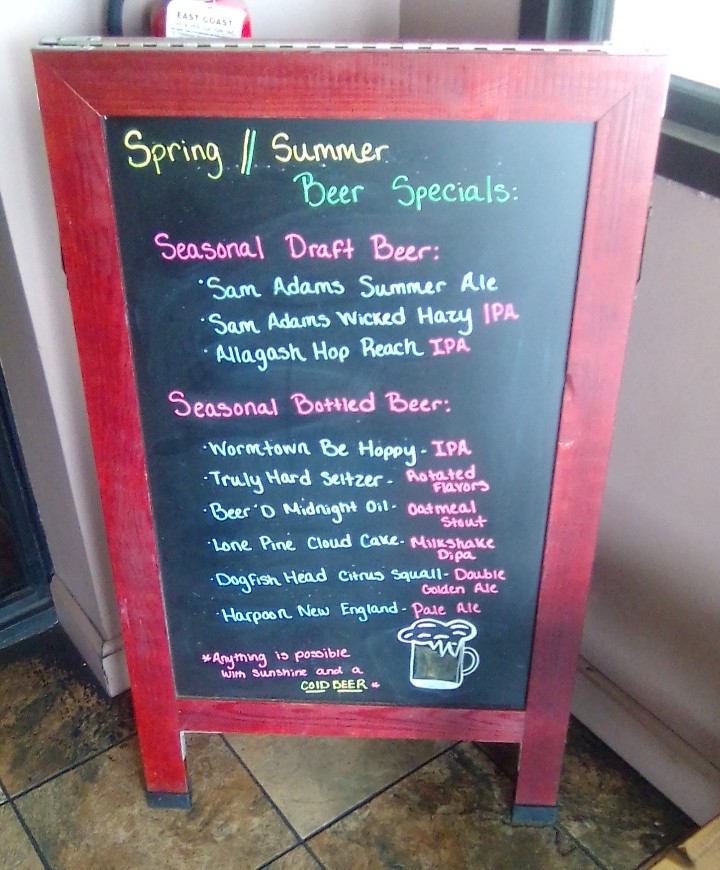 EAST COAST
Spring // Summer
Beer Specials:
Seasonal Draft Beer:
·Sam Adams Summer Ale
·Sam Adams Wicked Hazy IPA
·Allagash Hop Reach IPA
Seasonal Bottled Beer:
·Wormtown Be Hoppy - IPA
·Truly Hard Seltzer - Rotated
Flavors
·Beer'D Midnight Oil - Oatmeal
Stout
·Lone Pine Cloud Cake - Milkshake
Dipa
·Dogfish Head Citrus Squall - Double
Golden Ale
·Harpoon New England - Pale Ale
*Anything is possible
with sunshine and a
COLD BEER *